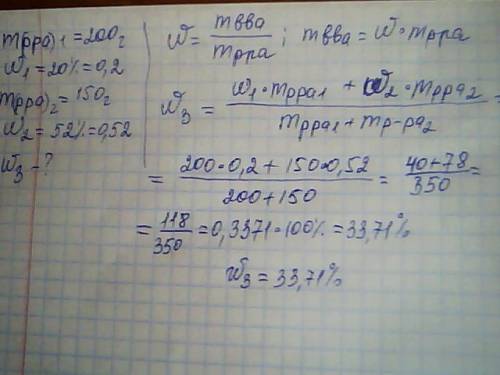 m(рра)1 = 200г
W1 = 20% = 0,2
m(рра)2 = 150г
W2 = 52% = 0,52
W3 - ?
W = mвва / mрра ; mвва = W · mрра
W3 = W1 · mрра1 + W2 · mрра2 / mрра1 + mр-ра2 =
= 200·0,2 + 150·0,52 / 200 + 150 = 40 + 78 / 350 =
= 118 / 350 = 0,3371 · 100% = 33,71%
W3 = 33,71%